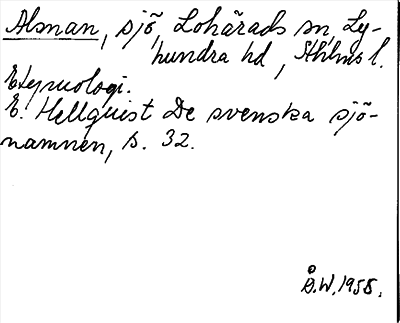 Alsnan, sjö, Lohärads sn, Ly-
hundra hd, Sthlms l.
Etymologi.
E. Hellquist De svenska sjö-
namnen, s. 32.
Å.W. 1958.